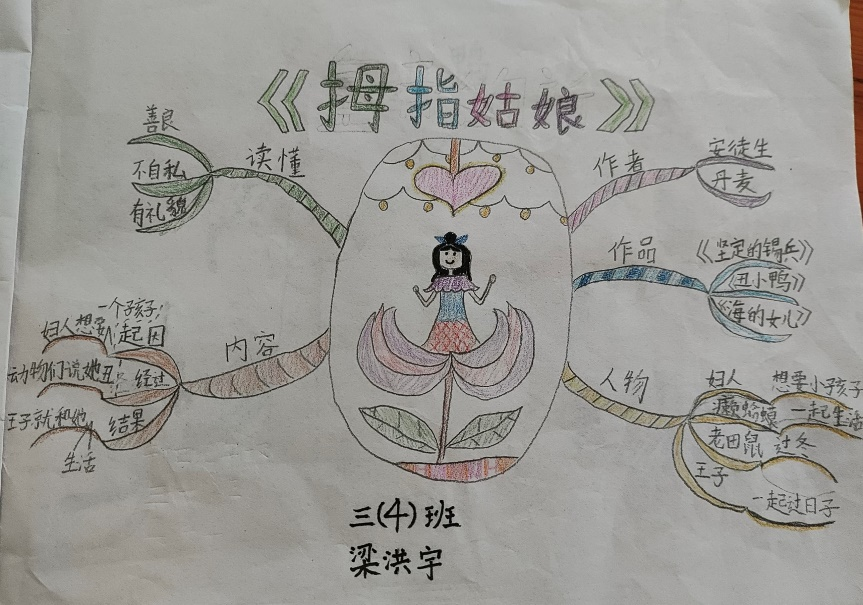 《拇指姑娘》
善良
不自私
有礼貌
读懂
作者
安徒生
丹麦
作品
《坚定的锡兵》
《丑小鸭》
《海的女儿》
内容
一个孩子
妇人想要
起因
动物们说她丑
经过
王子就和她
结果
生活
人物
妇人
想要小孩子
癞蛤蟆
一起生活
老田鼠
过冬
王子
一起过日子
三(4)班
梁洪宇